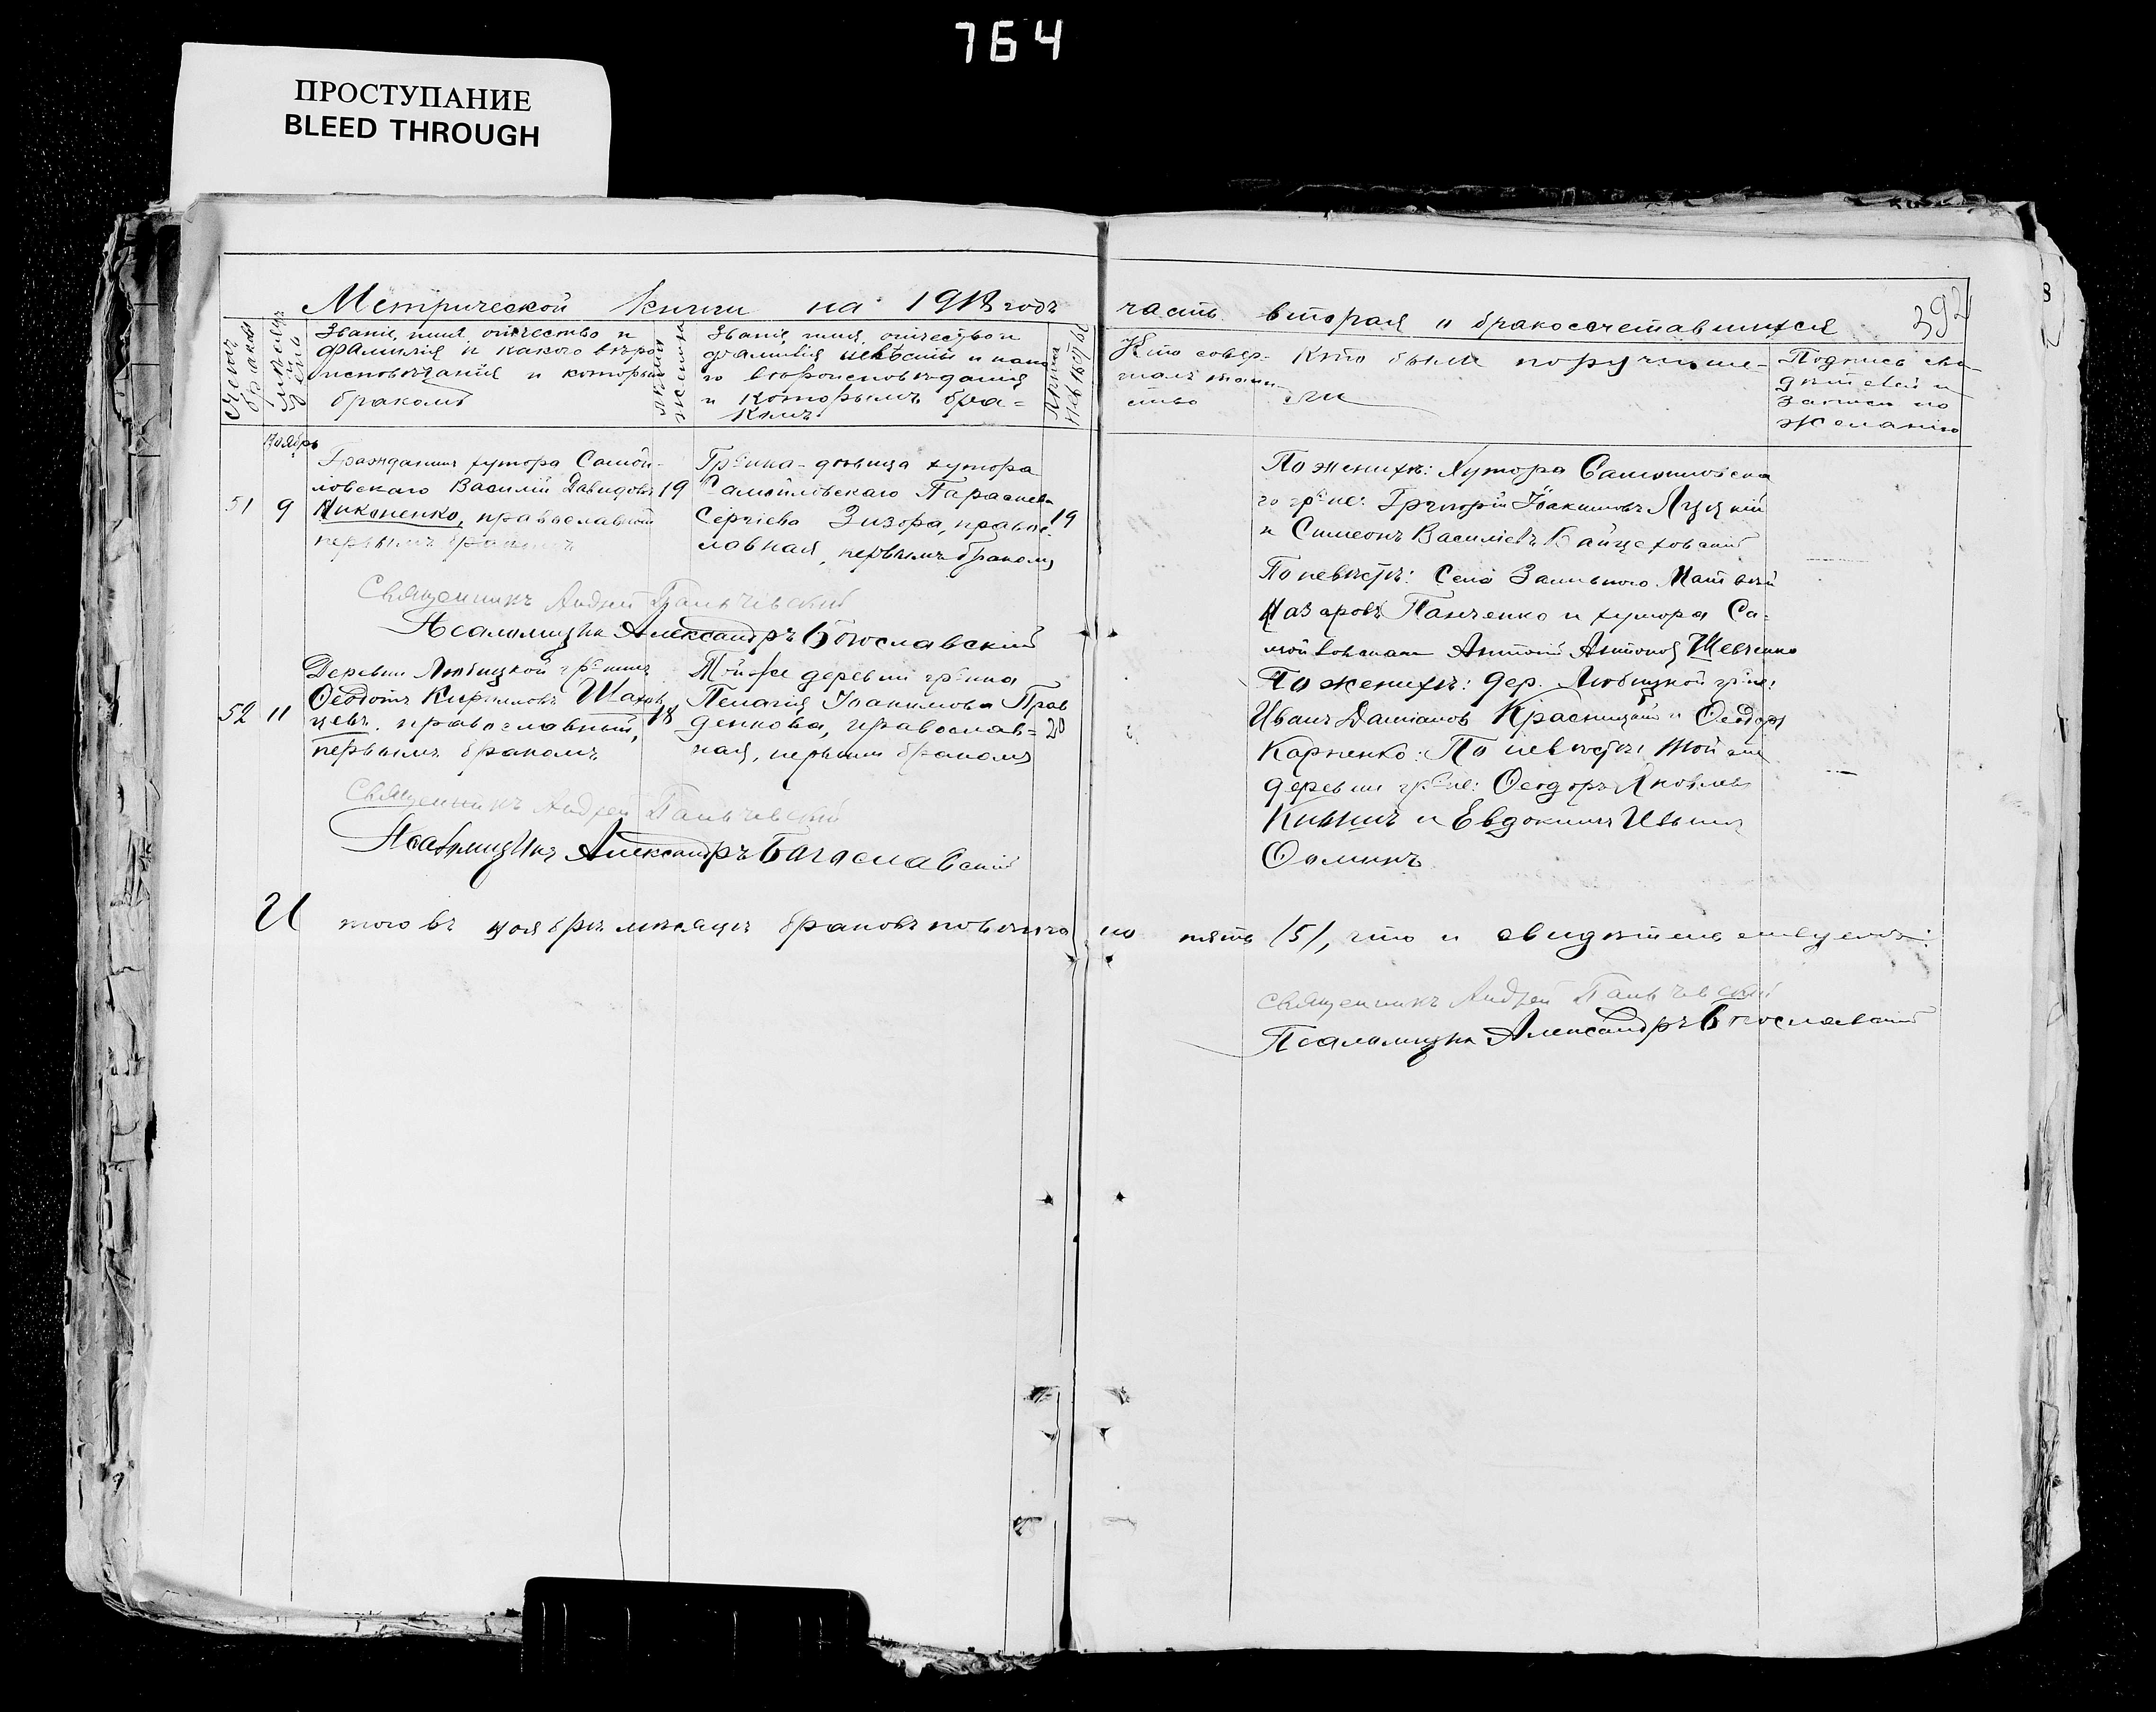 764
ПРОСТУПАНИЕ
BLEED THROUGH
Метрической книги на 1918 годъ
часть вторая о бракосочетавшихся
392
Счетъ браковъ
Званіе, имя, отчество и
фамилія и какого вѣро
исповѣданія и которым
бракомъ
Лѣта жениха
Званіе, имя, отчество и
фамилія невѣсты и како
го вѣроисповѣданія
и которымъ бра=
комъ
Лѣта невѣсты
Кто совер-
шалъ таин-
ство
Кто были поручите-
ли
Подпись сви-
дѣтелей и
записи по
желанію
Ноябрь
51
9
Гражданинъ хутора Самой-
ловскаго Василій Давидовъ
Никоненко, православный
первымъ бракомъ
19
Гр-нка-дѣвица хутора
Самойловскаго Параскева
Сергіева Зизора, правос-
лавная, первымъ бракомъ
19
По женихѣ: Хутора Самойловска
го гр-не: Григорій Іоакимовъ Луцкій
и Симеонъ Василіевъ Байцеховскій
По невѣстѣ: Села Зальнаго Матвѣй
Назаровъ Панченко и хутора Са-
мойловскаго Антоній Антоновъ Шевченко
Священникъ Андрей
Псаломщикъ Александръ Богославскій
52
11
Деревни Любицкой гр-нинъ
Ѳеодотъ Кирилловъ Шахов
цевъ, православный,
первымъ бракомъ
18
Той же деревни гр-нка
Пелагія Іоакимова Прав
денкова, православ=
ная, первымъ бракомъ
20
По женихѣ: дер. Любицкой гр-не:
Иванъ Даміановъ Красницкій и Ѳеодоръ
Карпенко: По невѣстѣ: той же
деревни гр-не: Ѳеодоръ Яковлевъ
и Евдокимъ Ильинъ
Ѳоминъ
Священникъ Андрей
Псаломщикъ Александръ Богославскій
Итого въ ноябрѣ мѣсяцѣ браковъ повѣнча но пять /5/, что и свидѣтельствуемъ:
Священникъ Андрей
Псаломщикъ Александръ Богославскій